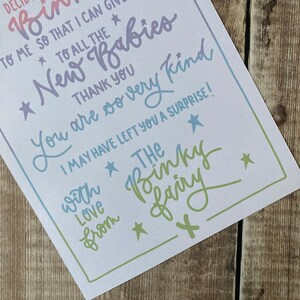 TO ME SO THAT I CAN GIVE
TO ALL THE
New Babies
THANK YOU
You are so very kind
I MAY HAVE LEFT YOU A SURPRISE!
with
love
from
The
Binky
fairy
x